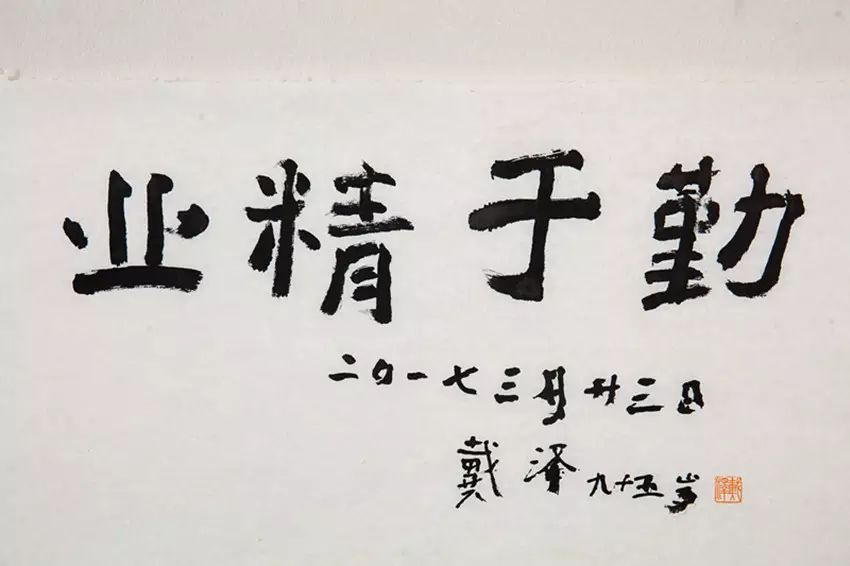 业精于勤
二〇一七三月廿三日
戴泽 九十五岁
戴泽